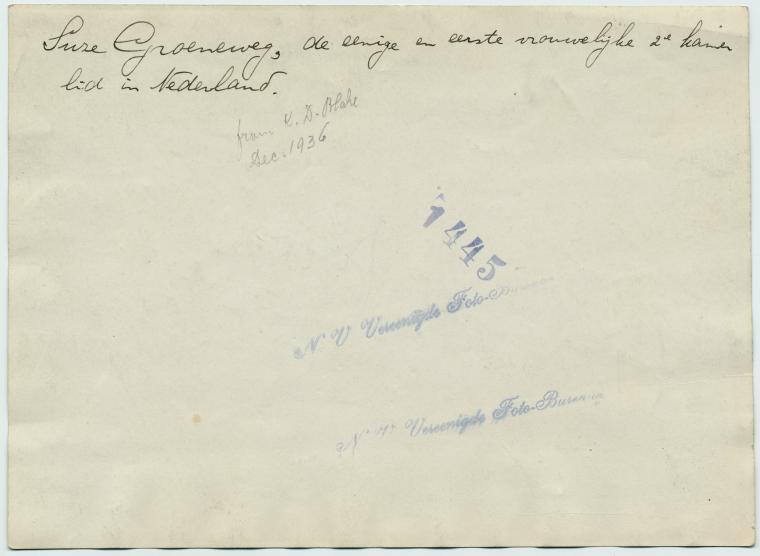 Suze Groeneweg, de eenige en eerste vrouwelijke 2e kamer
lid in Nederland.
from K. D. Blake
Dec. 1936
1445
N. V. Vereenigde Foto-Bureaux
N. V. Vereenigde Foto-Bureaux